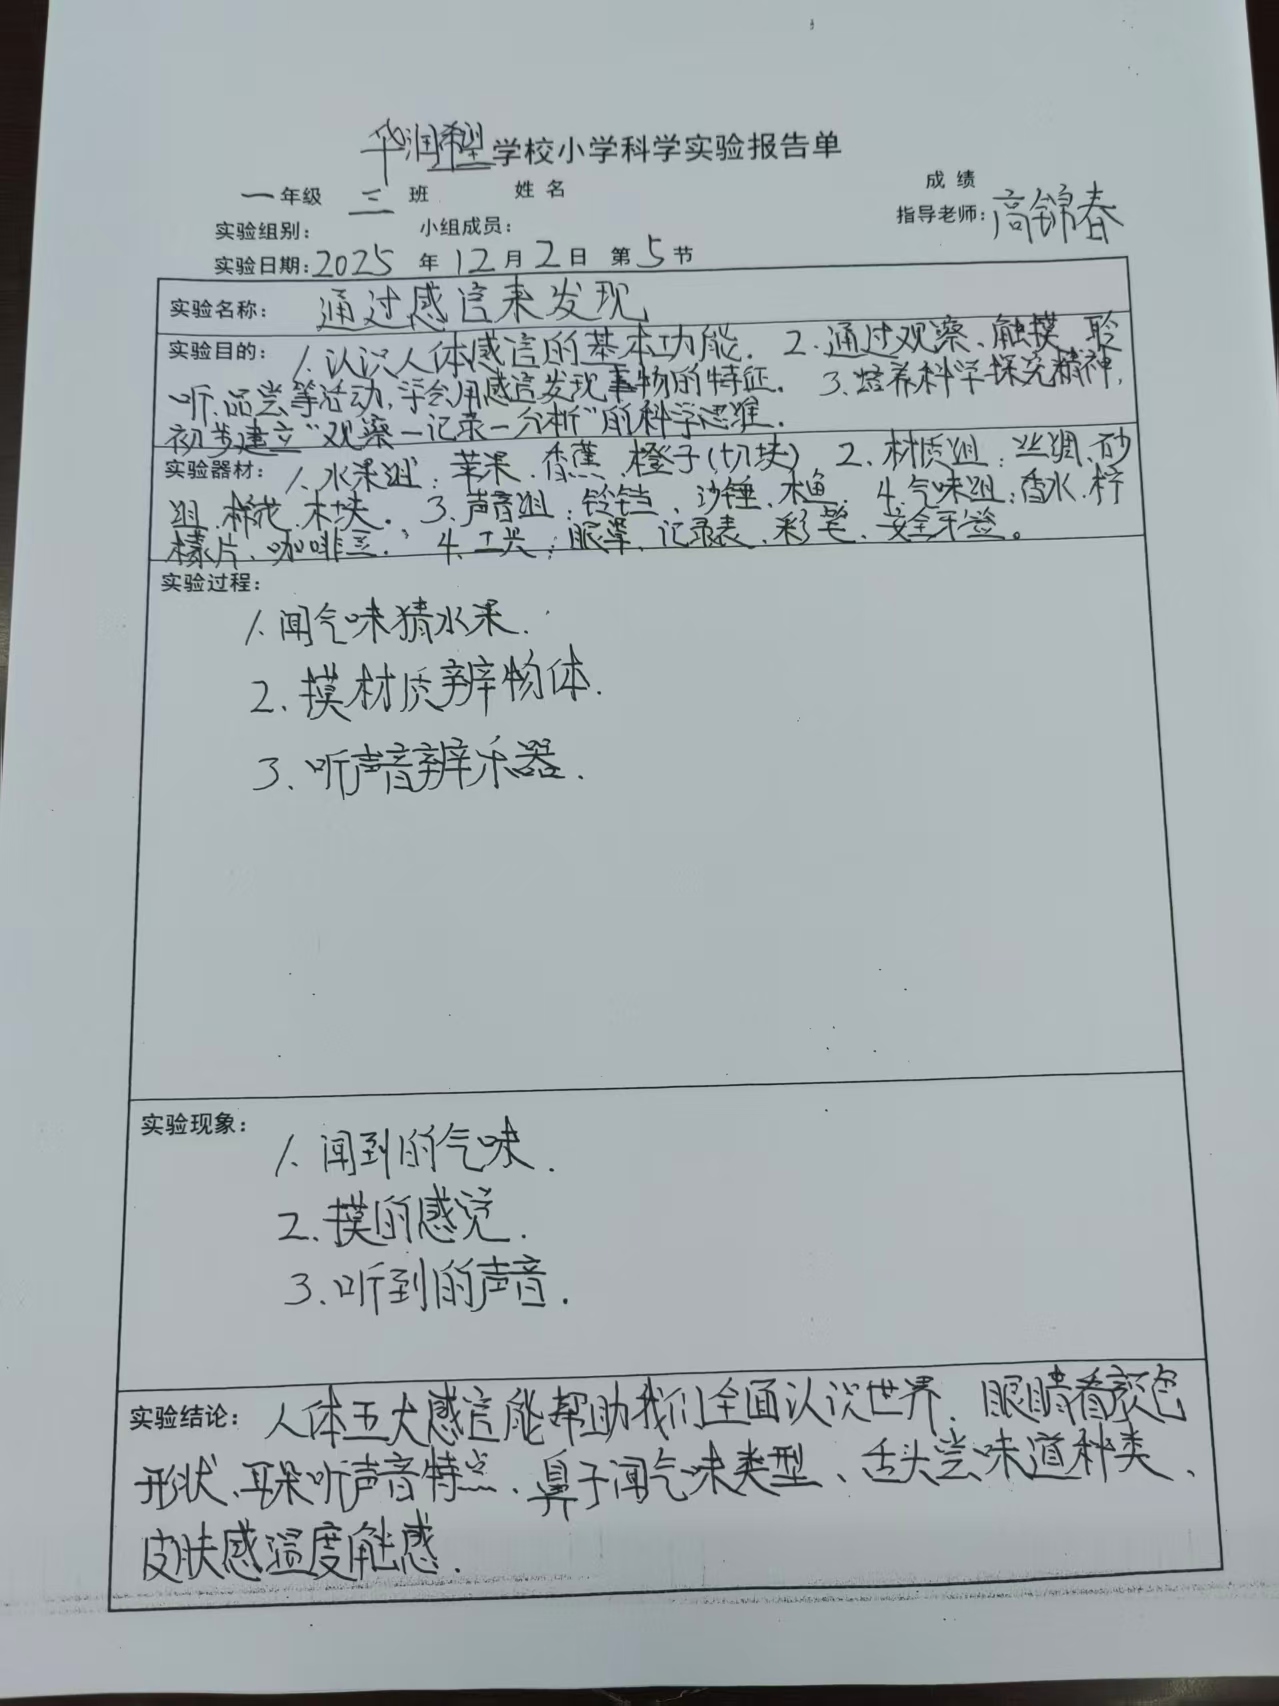 华润希望学校小学科学实验报告单
一年级 三 班 姓名 成绩
实验组别: 小组成员: 指导老师:高锦春
实验日期:2025 年 12月2日 第5节
实验名称: 通过感官来发现
实验目的: 1.认识人体感官的基本功能. 2.通过观察、触摸、聆
听、品尝等活动,学会用感官发现事物的特征. 3.培养科学探究精神,
初步建立“观察—记录—分析”的科学思维.
实验器材: 1.水果组: 苹果、香蕉、橙子(切块) 2.材质组: 丝绸、砂
组、棉花、木块. 3.声音组: 铃铛、沙锤、木鱼. 4.气味组:香水、柠
檬片、咖啡豆. 4.工具: 眼罩、记录表、彩笔、安全牙签。
实验过程:
1.闻气味猜水果.
2.摸材质辨物体.
3.听声音辨乐器.
实验现象:
1.闻到的气味.
2.摸的感觉.
3.听到的声音.
实验结论: 人体五大感官能帮助我们全面认识世界. 眼睛看颜色
形状、耳朵听声音特点、鼻子闻气味类型、舌头尝味道种类、
皮肤感温度触感.